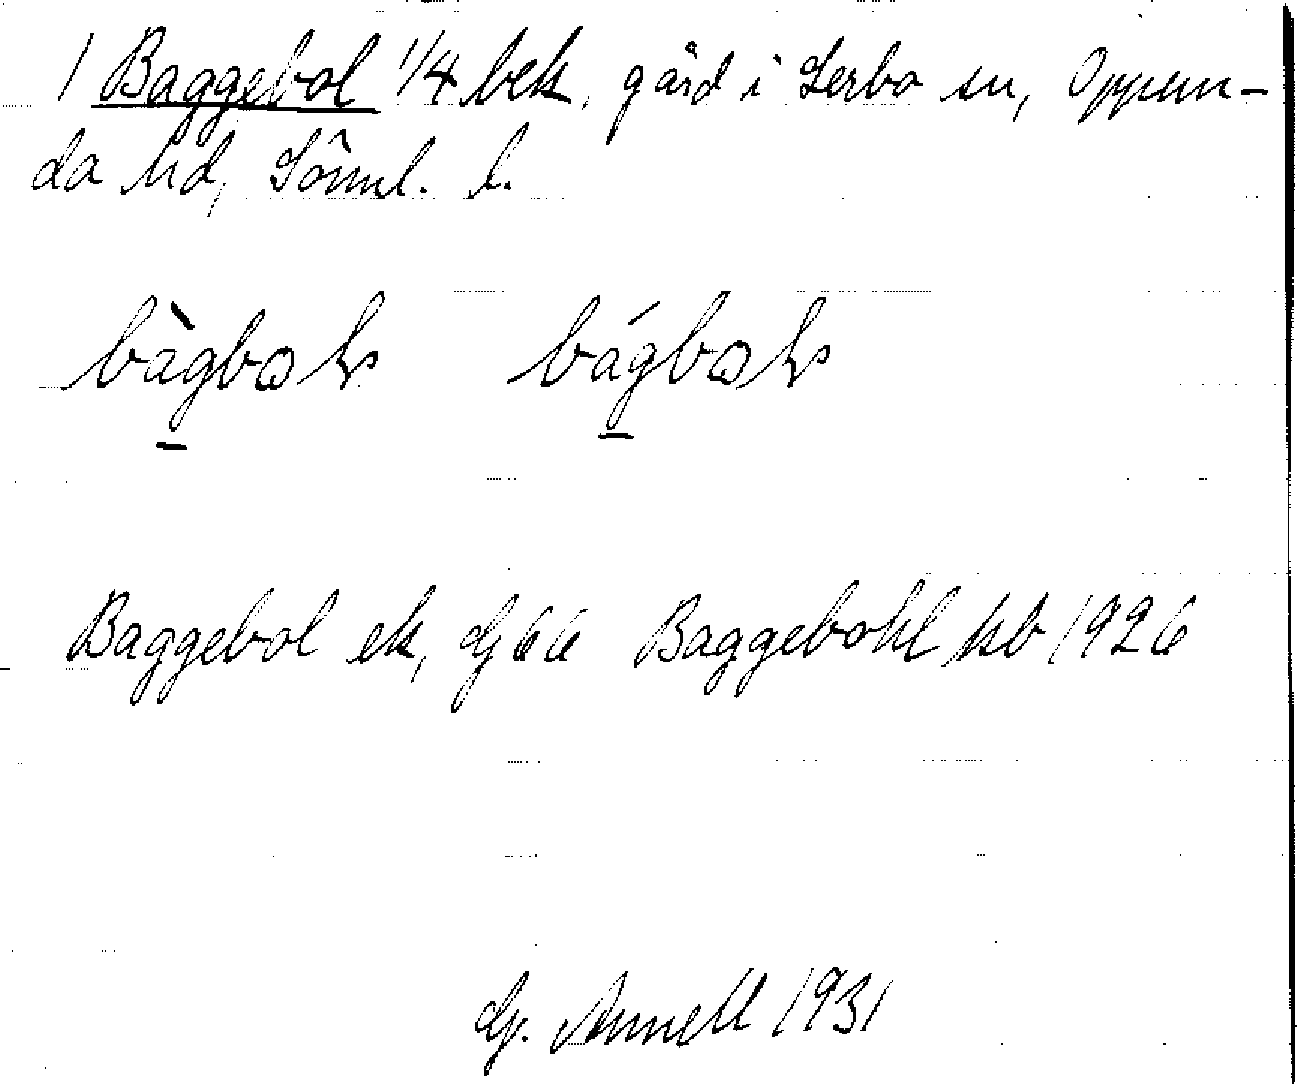 1 Baggebol 1/4 bek, gård i Lerbo sn, Oppun-
da hd, Sörml. l.
bàgboḷ bágboḷ
Baggebol ek, Gj 66 Baggebohl kb 1926
G. Annell 1931